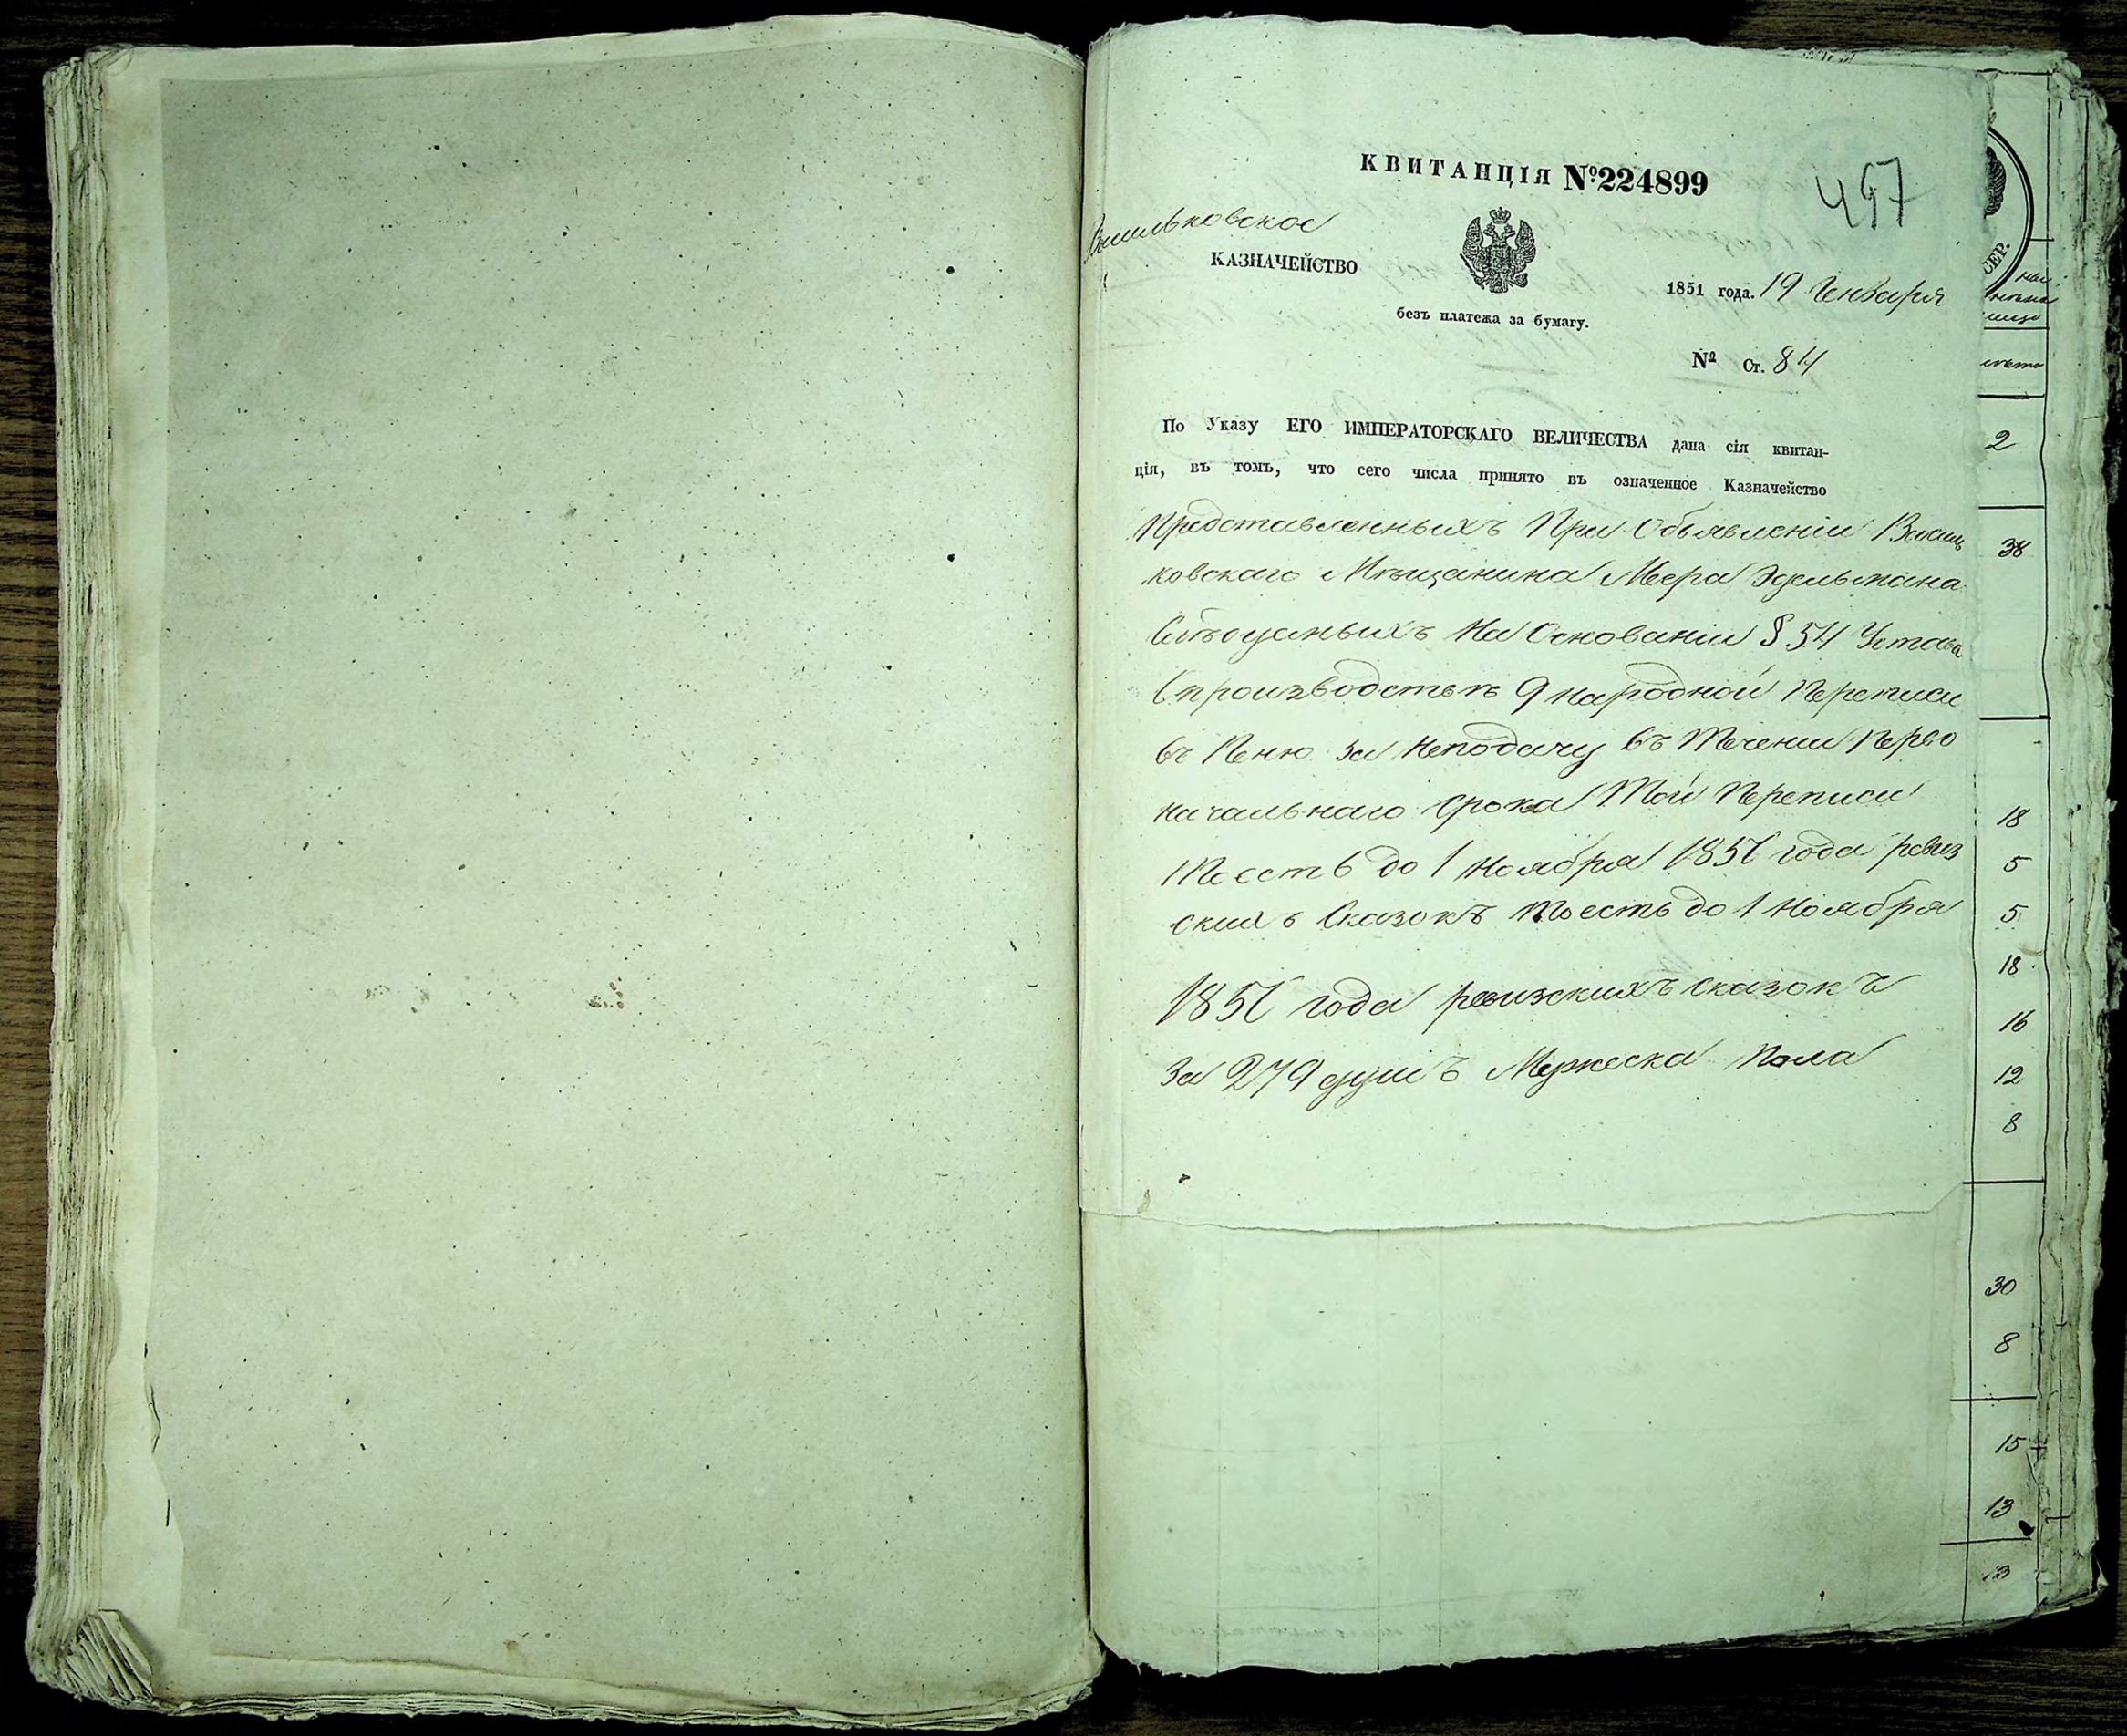 КВИТАНЦІЯ №224899
457
Васильковское
КАЗНАЧЕЙСТВО
1851 года. 19 Генваря
безъ платежа за бумагу.
№ Ст. 84
По Указу ЕГО ИМПЕРАТОРСКАГО ВЕЛИЧЕСТВА дана сія квитан-
ція, въ томъ, что сего числа принято въ означенное Казначейство
Представленныхъ При Объявленіи Василь
ковскаго Мѣщанина Меера Эдельмана
Слѣдуемыхъ На Основаніи § 54 Устава
О производствѣ 9 народной Переписи
въ Пеню За Неподачу въ Теченіи Перво
начальнаго срока Той Переписи
То есть до 1 Ноября 1850 года ревиз
скихъ Сказокъ то есть до 1 Ноября
1850 года ревизскихъ сказокъ
За 279 душъ Мужеска Пола
СЕР.
2
38
18
5
5
18
16
12
8
30
8
15
13
13